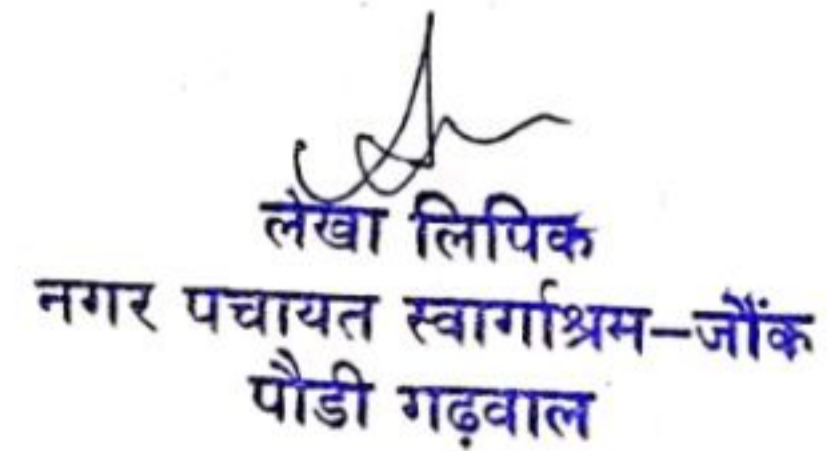 लेखा लिपिक
नगर पचायत स्वार्गाश्रम–जौंक
पौडी गढ़वाल